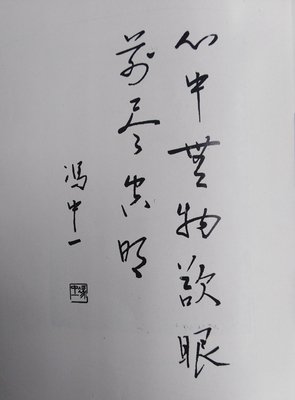 心中無物欲眼
前尽空明
馮中一